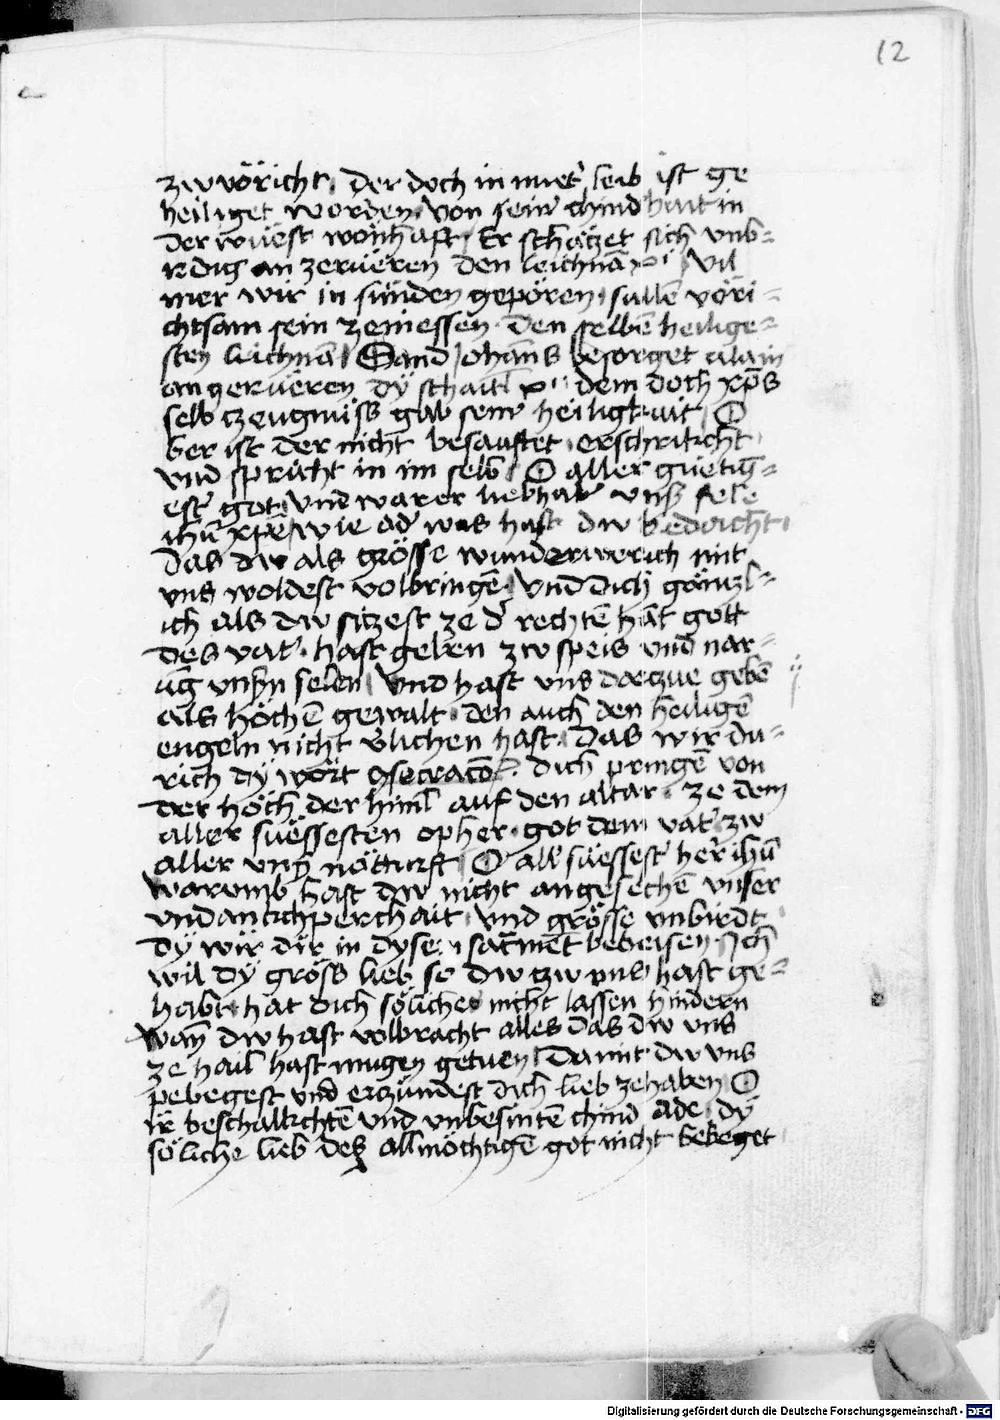 12
zw vöricht. Der doch in muet' leib ist ge
heiliget worden von sein' chindhait in
der wüest wonhaft Er schätzet sich vnb=
irdig an zerüeren den leichnā xpi Vil
mer wir in sünden gepören sullē vöri=
chtsam sein zeniessen den selbē heilige=
sten leichnā Sand Johāns besorget allain
an gerüeren dÿ schaitl xpi dem doch xp̄s
selb czeugnüss gab sein' heiligkait O
ber ist der nicht besaufftet erschrikcht
vnd spricht in im selb O aller güetig=
est' got vnd warer liebhab' vns' sele
ihū xpē wie ad' was hast dw bedacht
Das dw als grösse wunderwerich mit
vns woldest volbringē Vnd dich gänzl=
ich als dw sitzest ze d' rechtē hāt gott
des vat' hast geben zw speis vnd nar=
ūg vnsn selen Vnd hast vns darzue gebē
als höchē gewalt den auch den heiligē
engeln nicht v'lichen hast Das wir du=
rich dÿ wort 9secracōis dich pringē von
der höch der himl auf den altar ze dem
aller süessesten opher got dem vat' zw
aller vns' nötturft O all' süessest' her ihū
Warumb hast dw nicht angesechē vnser
vndankchperchait vnd grösse vnbirdt
dÿ wir dir in dysen sacrmēt beweisen Ich
wil dÿ gröss lieb so dw zw vns hast ge=
habt hat dich söliches nicht lassen hindern
Wan dw hast volbracht alles das dw vns
ze hail hast mugen getuen Damit dw vns
pebegest vnd erzündest dich lieb zehaben O
ir beschalkchtē vnd vnbesintē chind ade dÿ
söliche lieb des allmöchtigē got nicht bebeget
Digitalisierung gefördert durch die Deutsche Forschungsgemeinschaft - DFG